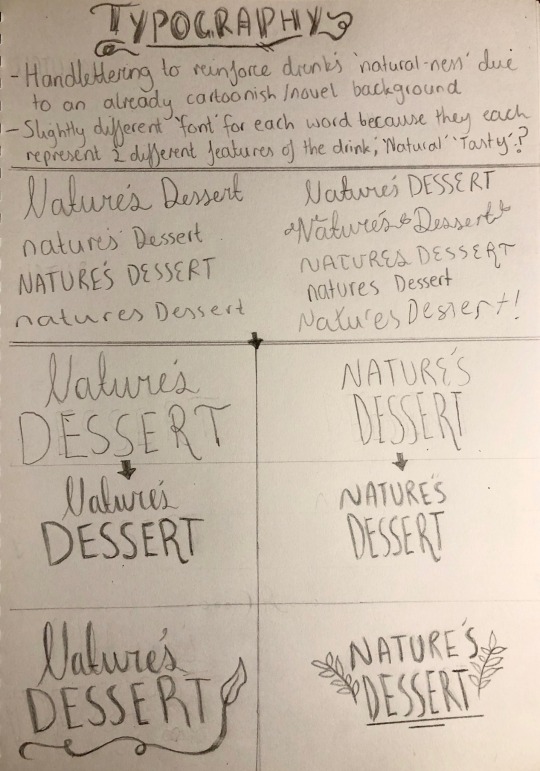 TYPOGRAPHY
- Handlettering to reinforce drink's 'natural-ness' due
to an already cartoonish/novel background
- Slightly different 'font' for each word because they each
represent 2 different features of the drink, 'Natural' 'Tasty'?
Nature's Dessert
natures' Dessert
NATURE'S DESSERT
natures Dessert
Nature's DESSERT
Nature's Dessert
NATURES DESSERT
natures Dessert
Natures Dessert!
Nature's
DESSERT
NATURE'S
DESSERT
Nature's
DESSERT
NATURE'S
DESSERT
Nature's
DESSERT
NATURE'S
DESSERT